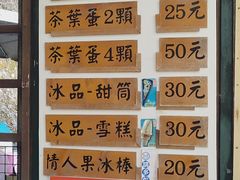 茶葉蛋2顆 25元
茶葉蛋4顆 50元
冰品-甜筒 30元
冰品-雪糕 30元
情人果冰棒 20元